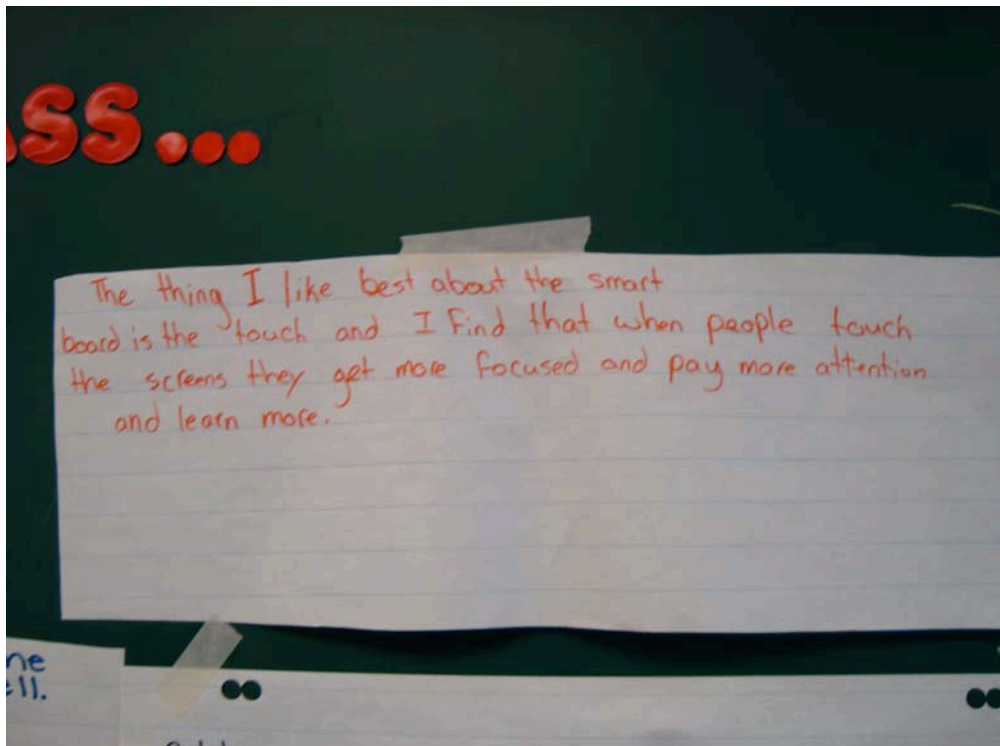 ASS...
The thing I like best about the smart
board is the touch and I find that when people touch
the screens they get more focused and pay more attention
and learn more.
ne
ell.